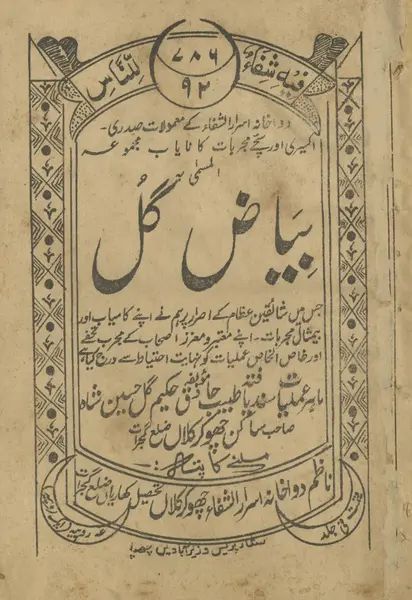 فیہ شفاء للناس
۷۸۶
۹۲
دواخانہ اسرار الشفاء کے معمولات صدری۔
اکسیری اور سچے مجربات کا نایاب مجموعہ
المسمٰی
بیاض گل
جس میں شائقین عظام کے اصرار پر ہم نے اپنے کامیاب اور
بیمثال مجربات۔ اپنے معتبر و معزز اصحاب کے مجرب تحفے
اور خاص الخاص عملیات کو نہایت احتیاط سے درج کیا ہے
مؤلفہ
ماہر عملیات سند یافتہ طبیب حاذق حکیم گل حسین شاہ
صاحب ساکن چھوکر کلاں ضلع گجرات
ملنے کا پتہ:۔
ناظم دواخانہ اسرار الشفاء چھوکر کلاں تحصیل کھاریاں ضلع گجرات
قیمت فی جلد
ایک روپیہ